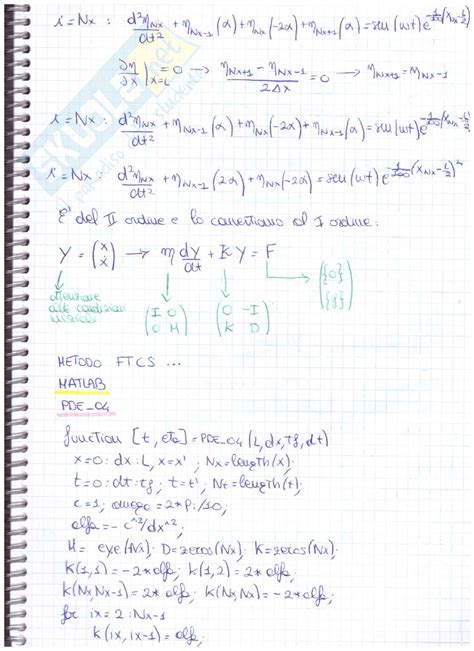 i=Nx : d²η_Nx/dt² + η_Nx-1(α) + η_Nx(-2α) + η_Nx+1(α) = sen(ωt)e^-1/100(x_Nx-L/2)
∂η/∂x|x=L = 0 → (η_Nx+1 - η_Nx-1)/2Δx = 0 → η_Nx+1 = η_Nx-1
i=Nx : d²η_Nx/dt² + η_Nx-1(α) + η_Nx(-2α) + η_Nx-1(α) = sen(ωt)e^-1/100(x_Nx-L/2)
i=Nx : d²η_Nx/dt² + η_Nx-1(2α) + η_Nx(-2α) = sen(ωt)e^-1/100(x_Nx-L/2)^2
E' del II ordine e lo convertiamo al I ordine:
Y = (x ẋ) → M dY/dt + K Y = F
({0} {f})
attenzione
alle condizioni
iniziali
(I 0 0 M) (0 -I K D)
METODO FTCS ...
MATLAB
PDE_04
function [t, eta] = PDE_04 (L,dx,tf,dt)
x=0:dx:L, x=x', Nx=length(x);
t=0:dt:tf; t=t'; Nt=length(t);
c=1; omega=2*pi/10;
alfa=-c^2/dx^2;
M= eye(Nx); D=zeros(Nx); K=zeros(Nx);
K(1,1)=-2*alfa; K(1,2)=2*alfa;
K(Nx,Nx-1)=2*alfa; K(Nx,Nx)=-2*alfa;
for ix=2:Nx-1
K(ix,ix-1)=alfa;